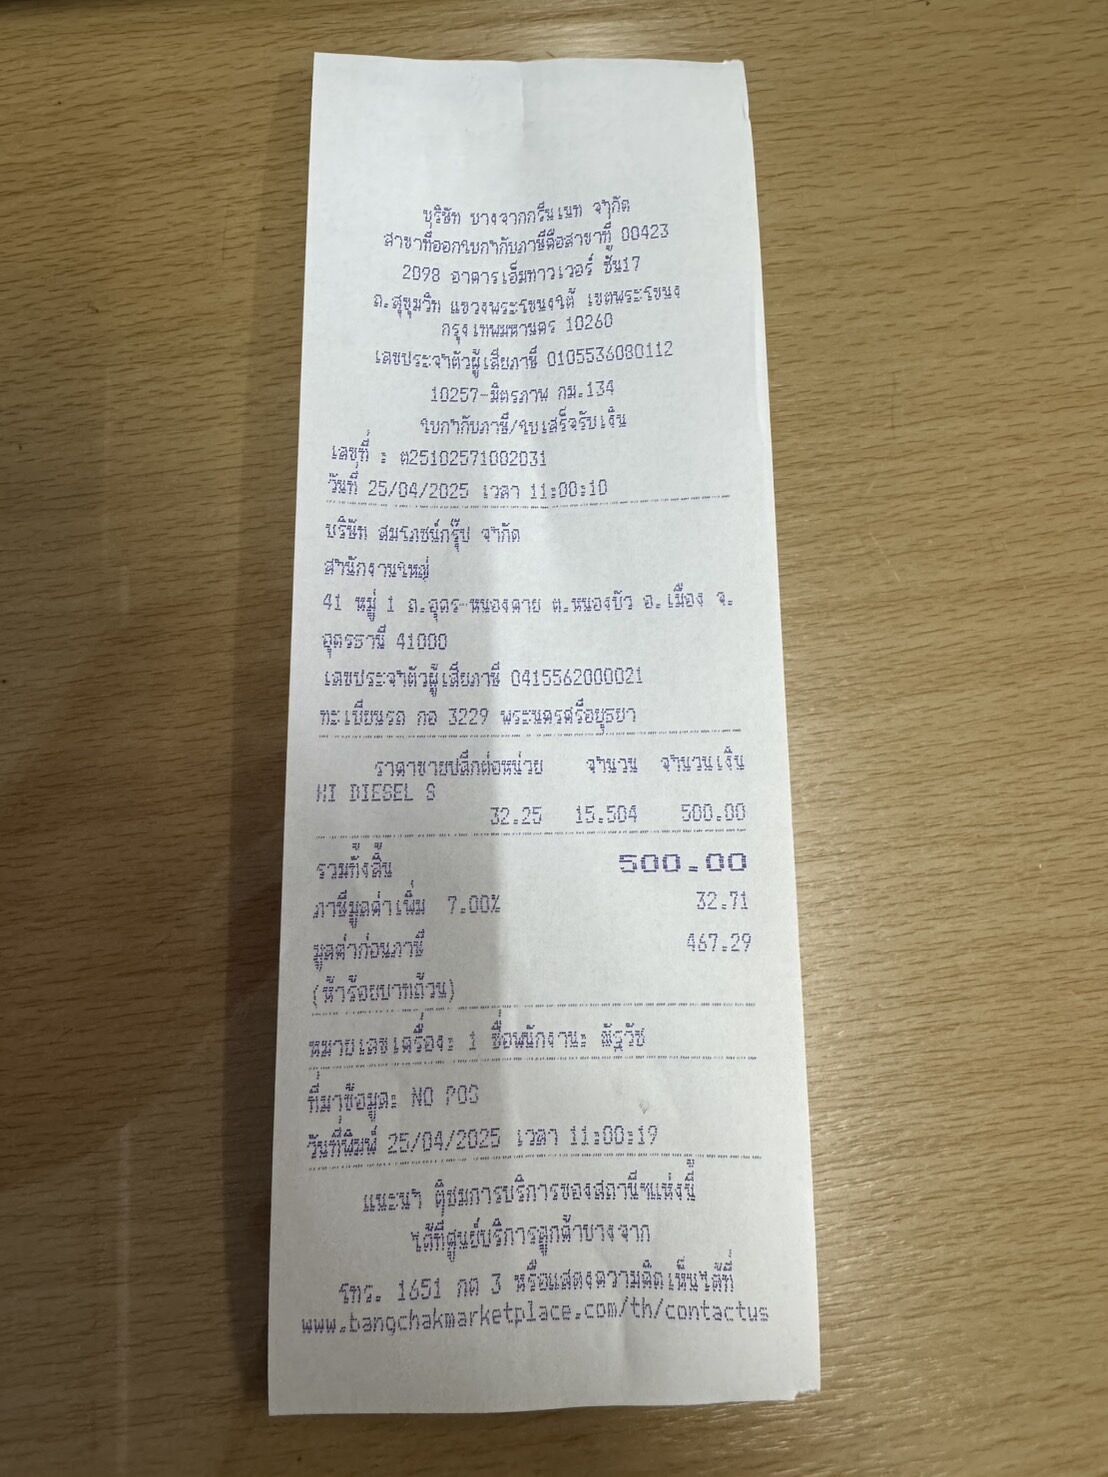 บริษัท บางจากกรีนเนท จำกัด
สาขาที่ออกใบกำกับภาษีคือสาขาที่ 00423
2098 อาคารเอ็มทาวเวอร์ ชั้น17
ถ.สุขุมวิท แขวงพระโขนงใต้ เขตพระโขนง
กรุงเทพมหานคร 10260
เลขประจำตัวผู้เสียภาษี 0105536080112
10257-มิตรภาพ กม.134
ใบกำกับภาษี/ใบเสร็จรับเงิน
เลขที่ : ต25102571002031
วันที่ 25/04/2025 เวลา 11:00:10
บริษัท สมโภชน์กรุ๊ป จำกัด
สำนักงานใหญ่
41 หมู่ 1 ถ.อุดร-หนองคาย ต.หนองบัว อ.เมือง จ.
อุดรธานี 41000
เลขประจำตัวผู้เสียภาษี 0415562000021
ทะเบียนรถ กอ 3229 พระนครศรีอยุธยา
ราคาขายปลีกต่อหน่วย จำนวน จำนวนเงิน
HI DIESEL S
32.25 15.504 500.00
รวมทั้งสิ้น 500.00
ภาษีมูลค่าเพิ่ม 7.00% 32.71
มูลค่าก่อนภาษี 467.29
(ห้าร้อยบาทถ้วน)
หมายเลขเครื่อง: 1 ชื่อพนักงาน: ณัฐวัช
ที่มาข้อมูล: NO POS
วันที่พิมพ์ 25/04/2025 เวลา 11:00:19
แนะนำ ติชมการบริการของสถานีฯแห่งนี้
ได้ที่ศูนย์บริการลูกค้าบางจาก
โทร. 1651 กด 3 หรือแสดงความคิดเห็นได้ที่
www.bangchakmarketplace.com/th/contactus